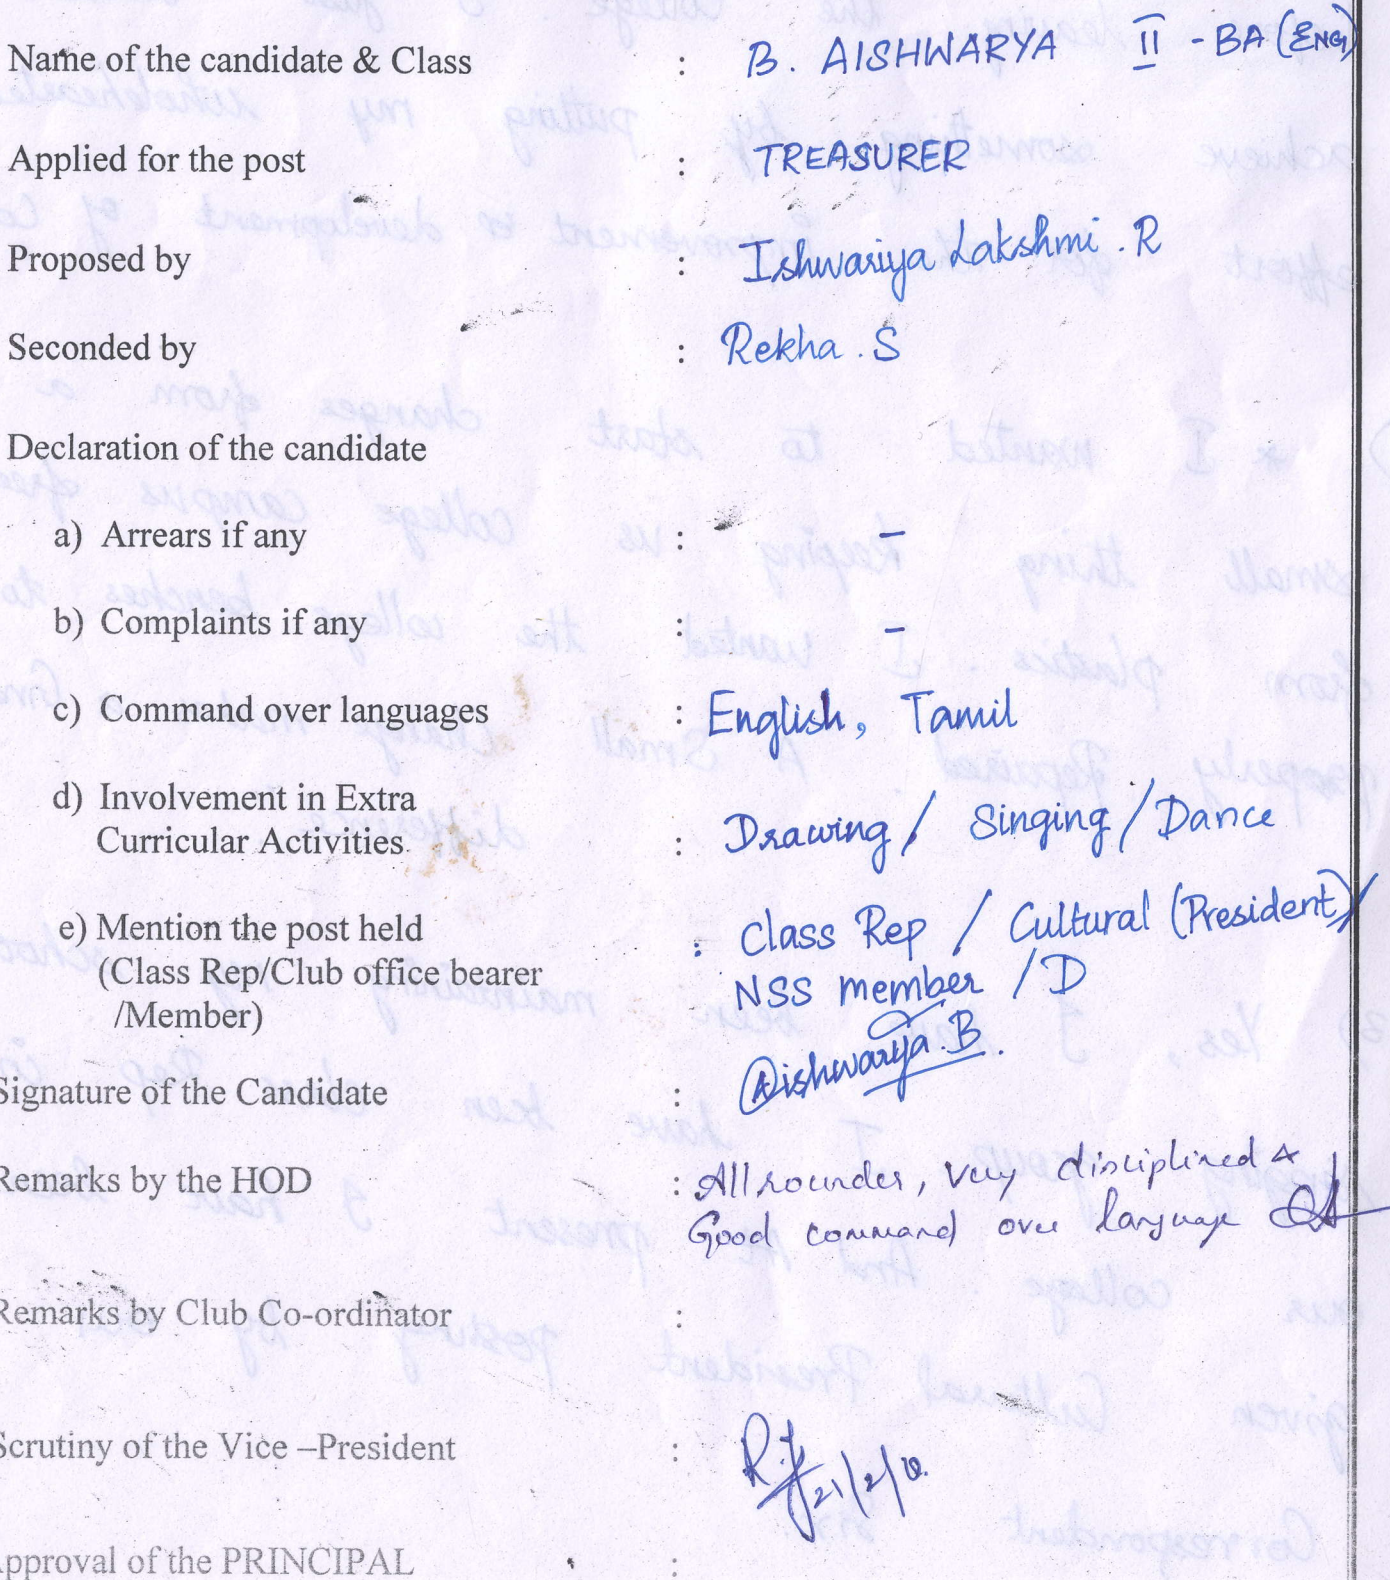 Name of the candidate & Class : B. AISHWARYA II - BA (ENG)
Applied for the post : TREASURER
Proposed by : Ishwariya Lakshmi . R
Seconded by : Rekha . S
Declaration of the candidate
a) Arrears if any : –
b) Complaints if any : –
c) Command over languages : English, Tamil
d) Involvement in Extra
Curricular Activities. : Drawing / Singing / Dance
e) Mention the post held : Class Rep / Cultural (President) /
(Class Rep/Club office bearer NSS member / D
/Member)
Signature of the Candidate : Aishwarya . B.
Remarks by the HOD : All rounder, Very disciplined &
Good command over language
Remarks by Club Co-ordinator :
Scrutiny of the Vice –President : 21/2/
pproval of the PRINCIPAL :